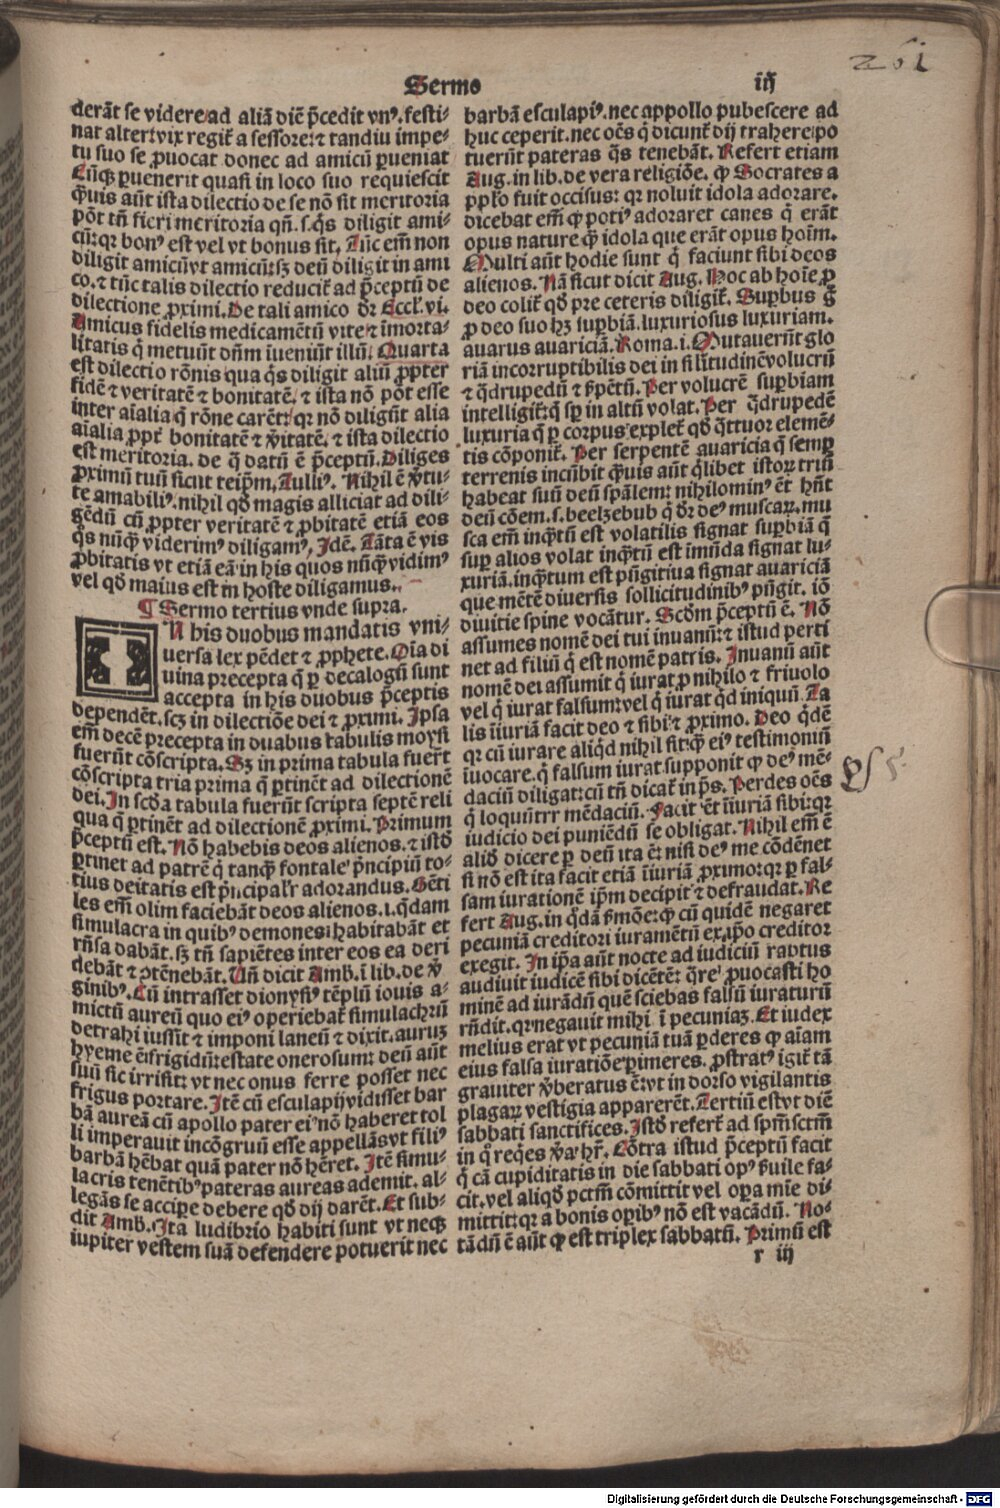 Sermo iij
261
derāt se videre ad aliā diē p̄cedit vnꝰ. festi-
nat alter: vix regit᷑ a sessore: ⁊ tandiu impe-
tu suo se ꝓuocat donec ad amicū ꝑueniat
Cūqꝫ ꝑuenerit quasi in loco suo requiescit
q̄uis aūt ista dilectio de se nō sit meritoria
pōt tn̄ fieri meritoria qn̄ .s. q̄s diligit ami-
cū: qꝛ bonꝰ est vel vt bonus sit. Tūc em̄ non
diligit amicū vt amicū: sꝫ deū diligit in ami
co. ⁊ tūc talis dilectio reducit᷑ ad p̄ceptū de
dilectione ꝓximi. De tali amico d̄r Eccl᷑. vi.
Amicus fidelis medicamētū vite ⁊ īmorta-
litatis q̄ metuūt dn̄m īueniūt illū. Quarta
est dilectio rōnis qua q̄s diligit aliū ꝓpter
fidē ⁊ veritatē ⁊ bonitatē, ⁊ ista nō pōt esse
inter aīalia q̄ rōne carēt: qꝛ nō diligūt alia
aīalia ꝓpt᷑ bonitatē ⁊ v̄itatē. ⁊ ista dilectio
est meritoria. de q̄ datū ē p̄ceptū. Diliges
ꝓximū tuū sicut teip̄m. Tulliꝰ. Nihil ē v̄tu-
te amabiliꝰ. nihil qd̄ magis alliciat ad dili-
gēdū cū ꝓpter veritatē ⁊ ꝓbitatē etiā eos
q̄s nūq̄ viderimꝰ diligamꝰ, Idē. Tāta ē vis
ꝓbitatis vt etiā eā in his quos nūq̄ vidimꝰ
vel qd̄ maius est in hoste diligamus.
¶ Sermo tertius vnde supra.
IN his duobus mandatis vni-
uersa lex pēdet ⁊ ꝓphete. Oīa di
uina precepta q̄ ꝑ decalogū sunt
accepta in his duobus p̄ceptis
dependēt. scꝫ in dilectiōe dei ⁊ ꝓximi. Ipsa
em̄ decē precepta in duabus tabulis moysi
fuerūt cōscripta. Sꝫ in prima tabula fuer̄t
cōscripta tria prima q̄ ꝑtinēt ad dilectionē
dei. In scd̄a tabula fuerūt scripta septē reli
qua q̄ ꝑtinēt ad dilectionē ꝓximi. Primum
p̄ceptū est. Nō habebis deos alienos. ⁊ istd̄
ꝑtinet ad patrē q̄ tanq̄ fontale p̄ncipiū to-
tius deitatis est p̄ncipal᷑r adorandus. Gēti
les em̄ olim faciebāt deos alienos .i. q̄dam
simulacra in quibꝰ demones habitabāt et
rn̄sa dabāt. sꝫ tn̄ sapiētes inter eos ea deri
debāt ⁊ ꝯtēnebāt. Vn̄ dicit Amb. ī lib. de v̄
ginibꝰ. Cū intrasset dionysiꝰ tēplū iouis a-
mictū aureū quo eiꝰ operiebat᷑ simulachrū
detrahi iussit ⁊ imponi laneū ⁊ dixit. aurūꝫ
hyeme ē frigidū: estate onerosum: deū aūt
suū sic irrisit: vt nec onus ferre posset nec
frigus portare. Itē cū esculapij vidisset bar
bā aureā cū apollo pater eiꝰ nō haberet tol
li imperauit incōgruū esse appellās vt filiꝰ
barbā hēbat quā pater nō hēret. Itē simu-
lacris tenētibꝰ pateras aureas ademit. al-
legās se accipe debere qd̄ dij darēt. Et sub-
dit Amb. Ita ludibrio habiti sunt vt neqꝫ
iupiter vestem suā defendere potuerit nec
barbā esculapiꝰ. nec appollo pubescere ad
huc ceperit. nec oēs q̄ dicunt᷑ dij trahere po
tuerūt pateras q̄s tenebāt. Refert etiam
Aug. in lib. de vera religiōe. ꝙ Socrates a
pplo fuit occisus: qꝛ noluit idola adorare.
dicebat em̄ ꝙ potiꝰ adoraret canes q̄ erāt
opus nature ꝙ̄ idola que erāt opus hoīm.
Multi aūt hodie sunt q̄ faciunt sibi deos
alienos. Nā sicut dicit Aug. Hoc ab hoīe ꝓ
deo colit᷑ qd̄ pre ceteris diligit᷑. Suꝑbus g̊
ꝓ deo suo hꝫ suꝑbiā. luxuriosus luxuriam.
auarus auariciā. Roma. i. Mutauerūt glo
riā incorruptibilis dei in sil᷑itudinē volucrū
⁊ q̄drupedū ⁊ ẜpētū. Per volucrē suꝑbiam
intelligit᷑: q̄ sꝑ in altū volat. Per q̄drupedē
luxuria q̄ ꝑ corpus explet᷑ qd̄ q̄ttuor elemē-
tis cōponit᷑. Per serpentē auaricia q̄ semꝑ
terrenis incūbit q̄uis aūt q̄libet istoꝝ triū
habeat suū deū spālem: nihilominꝰ ēt hn̄t
deū cōem .s. beelzebub q̄ d̄r deꝰ muscaꝝ. mu
sca em̄ inq̄tū est volatilis signat suꝑbiā q̄
suꝑ alios volat inq̄tū est imūda signat lu-
xuriā. inq̄tum est pūgitiua signat auariciā
que mētē diuersis sollicitudinibꝰ pūgit. iō
diuitie spine vocātur. Scd̄m p̄ceptū ē. Nō
assumes nomē dei tui inuanū: ⁊ istud perti
net ad filiū q̄ est nomē patris. Inuanū aūt
nomē dei assumit q̄ iurat ꝓ nihilo ⁊ friuolo
vel q̄ iurat falsum: vel q̄ iurat q̄d iniquū. Ta
lis iīuriā facit deo ⁊ sibi ⁊ ꝓximo. Deo q̄dē
qꝛ cū iurare aliq̄d nihil sit: q̄ eiꝰ testimoniū
īuocare. q̄ falsum iurat supponit ꝙ deꝰ mē-
daciū diligat: cū tn̄ dicat᷑ in ps̄. Perdes oēs
q̄ loquūt᷑r mēdaciū. Facit ēt iīuriā sibi: qꝛ
iudicio dei puniēdū se obligat. Nihil em̄ ē
aliō dicere ꝑ deū ita ē: nisi deꝰ me cōdēnet
si nō est ita facit etiā iīuriā ꝓximo: qꝛ ꝑ fal-
sam iurationē ip̄m decipit ⁊ defraudat. Re
fert Aug. in q̄dā ẜmōe: ꝙ cū quidē negaret
pecuniā creditori iuramētū ex ip̄o creditor
exegit. In ip̄a aūt nocte ad iudiciū raptus
audiuit iudicē sibi dicētē: q̄re ꝓuocasti ho
minē ad iurādū quē sciebas falsū iuraturū
rn̄dit. qꝛ negauit mihi ī pecuniaꝫ. Et iudex
melius erat vt pecuniā tuā ꝑderes ꝙ̄ aīam
eius falsa iuratiōe ꝑimeres. ꝓstratꝰ igit᷑ tā
grauiter v̄beratus ē: vt in dorso vigilantis
plagaꝝ vestigia apparerēt. Tertiū est vt diē
sabbati sanctifices. Istd̄ refert᷑ ad spm̄ sctm̄
in q̄ reqēs v̄a hr̄. Cōtra istud p̄ceptū facit
q̄ cā cupiditatis in die sabbati opꝰ ẜuile fa-
cit. vel aliqd̄ pctm̄ cōmittit vel oꝑa mīe di-
mittit: qꝛ a bonis oꝑibꝰ nō est vacādū. No-
tādū ē aūt ꝙ est triplex sabbatū. Primū est
r iij
ps 5.
Digitalisierung gefördert durch die Deutsche Forschungsgemeinschaft - DFG